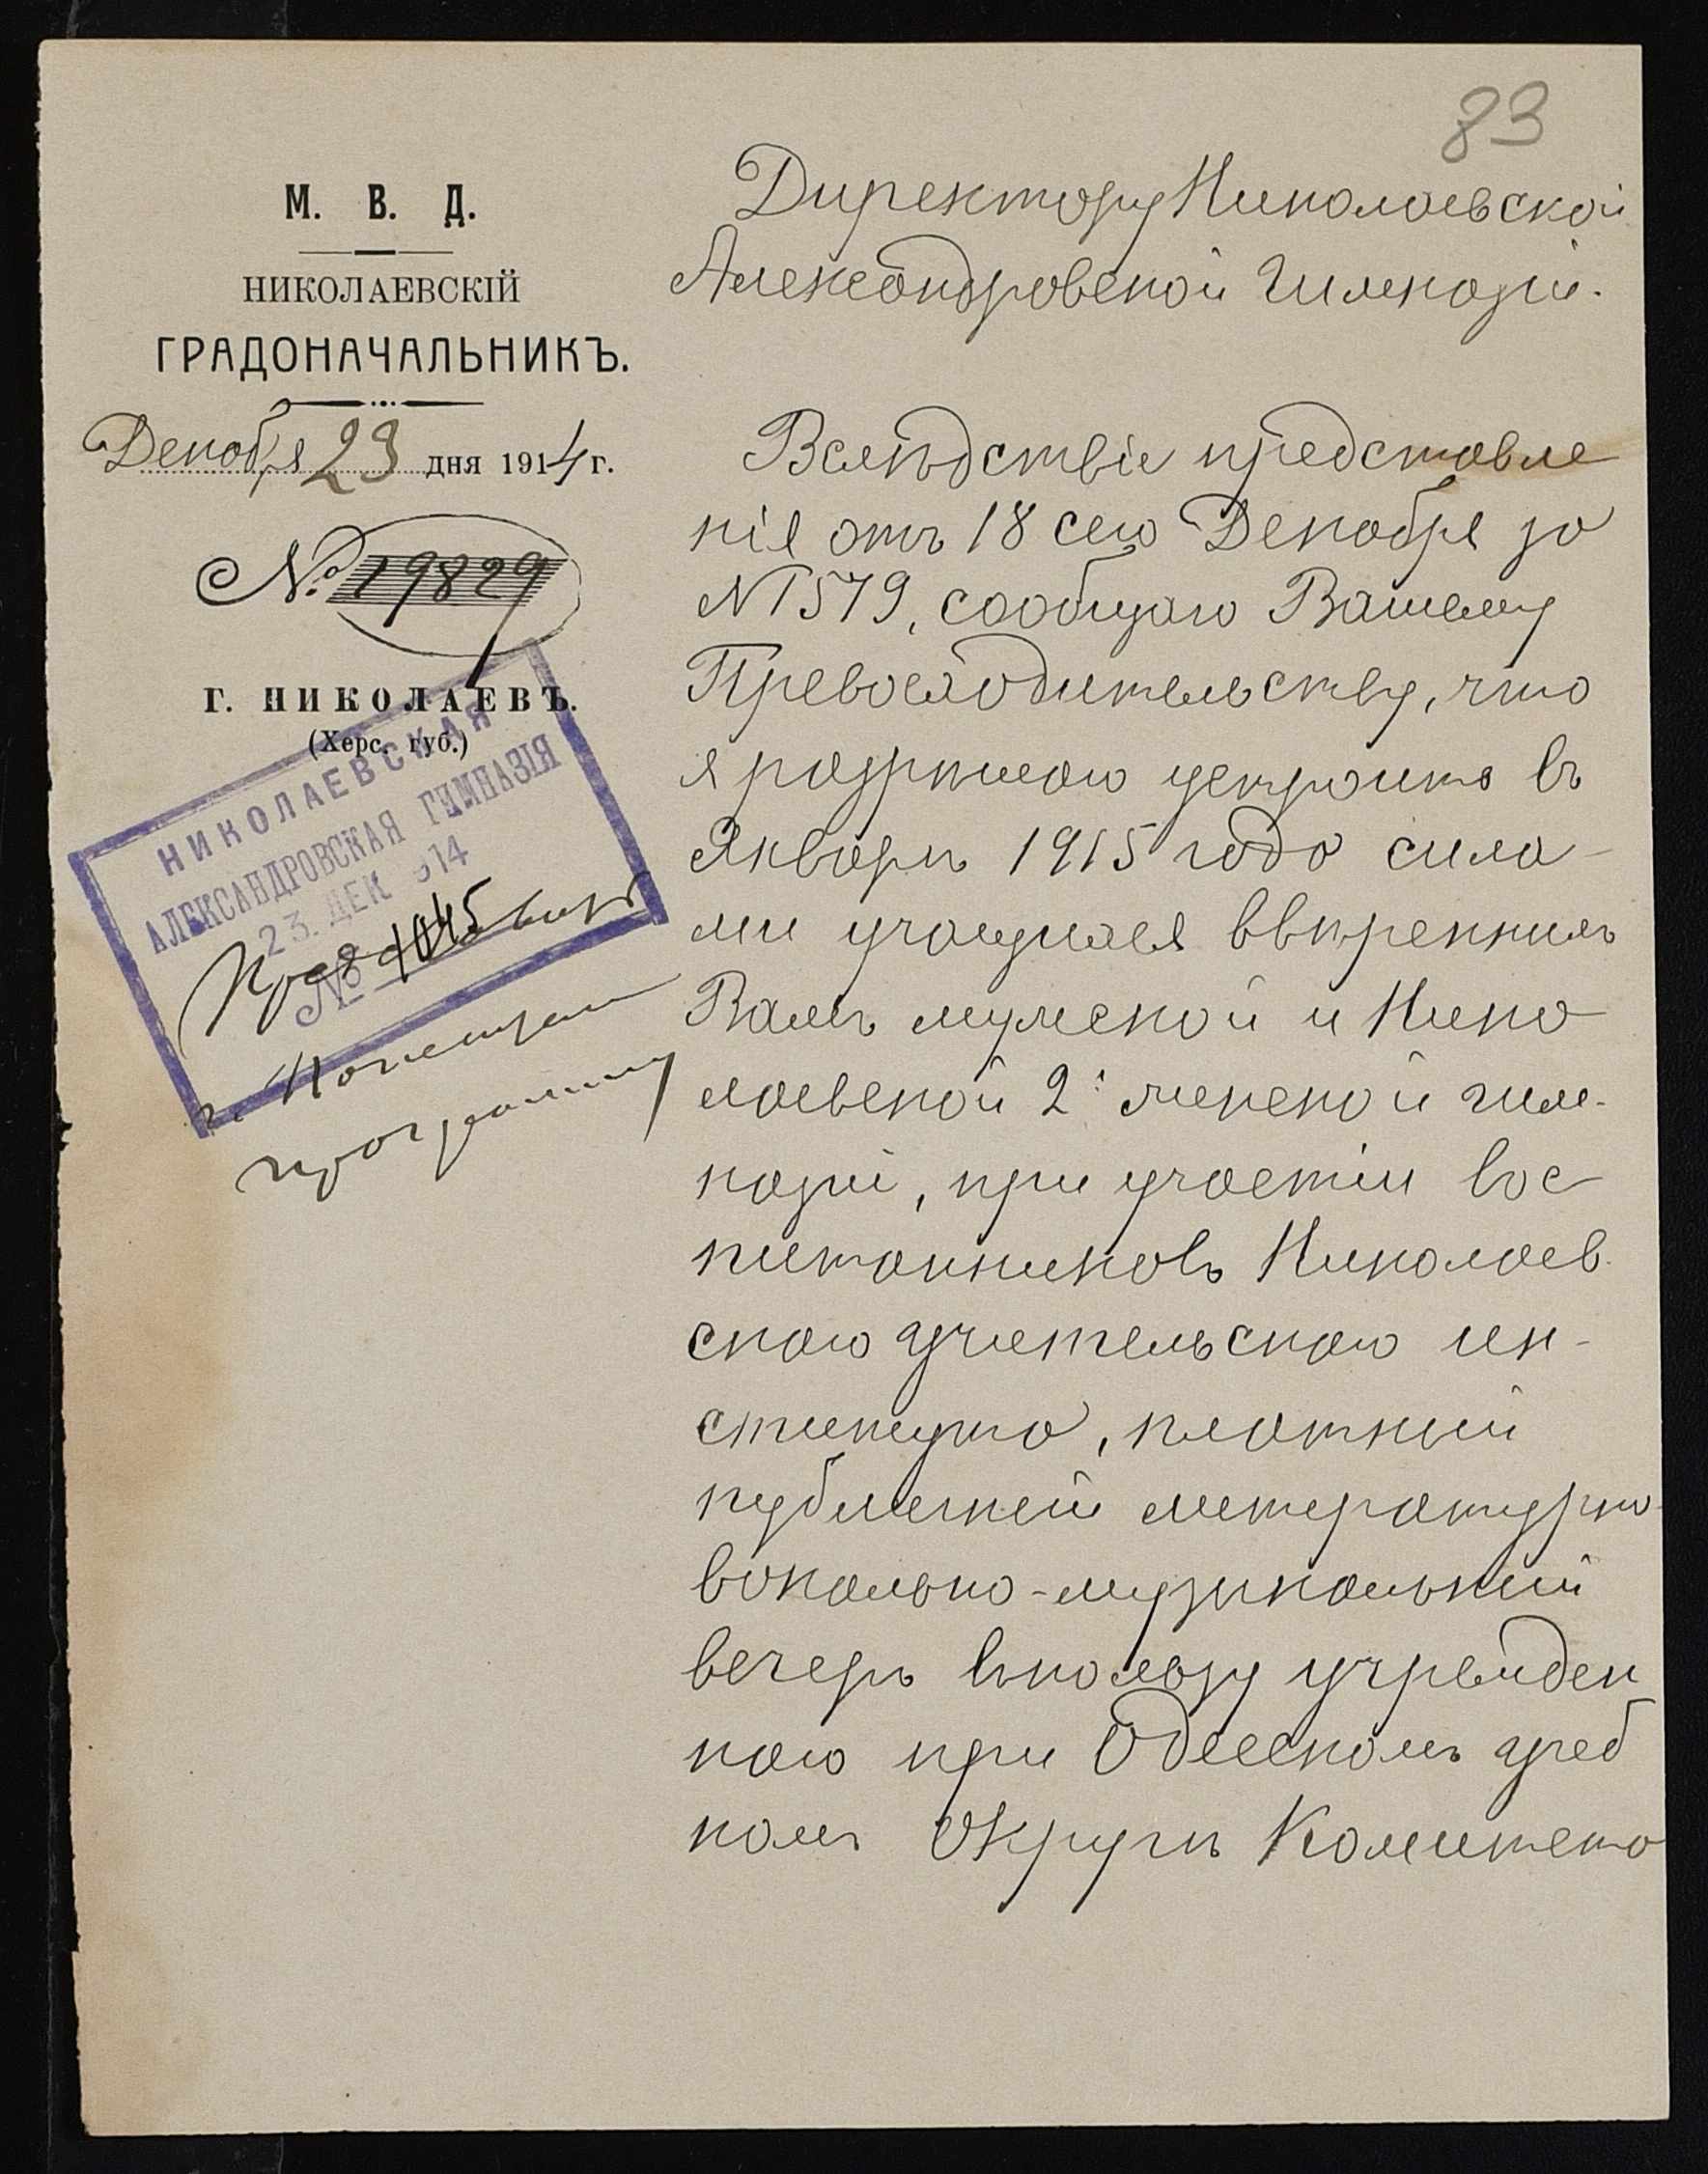 83
М. В. Д.
НИКОЛАЕВСКІЙ
ГРАДОНАЧАЛЬНИКЪ.
Декабря 23 дня 1914 г.
№ 19829
Г. НИКОЛАЕВЪ.
(Херс. губ.)
НИКОЛАЕВСКАЯ
АЛЕКСАНДРОВСКАЯ ГИМНАЗІЯ
23. ДЕК 914
№ 1045
программу
Директору Николаевской
Александровской Гимназіи.
Вслѣдствіе представле
нія отъ 18 сего Декабря за
№ 1579, сообщаю Вашему
Превосходительству, что
я разрѣшаю устроить въ
Январѣ 1915 года сила-
ми учащихся ввѣренныхъ
Вамъ мужской и Нико
лаевской 2й женской гим-
назій, при участіи вос
питанниковъ Николаев
скаго учительскаго ин-
ститута, платный
публичный литературно-
вокально-музыкальный
вечеръ въ пользу учрежден
наго при Одесскомъ учеб
номъ Округѣ Комитета